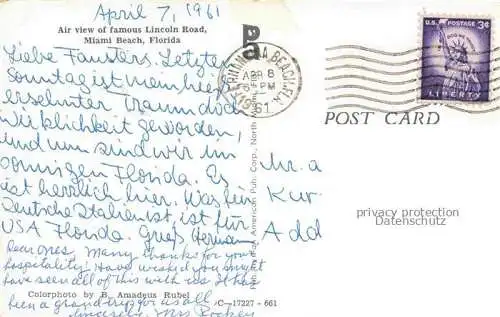 April 7, 1961
Air view of famous Lincoln Road,
Miami Beach, Florida
Liebe Fausters. Letzten
Sonntag ist mein heiß
ersehnter Traum doch
Wirklichkeit geworden,
und nun sind wir im
sonnigen Florida. Es
ist herrlich hier. Was für
Deutsche Italien ist, ist für
USA Florida. Gruß Hermann
Dear Ones, Many thanks for your
hospitality. Have wished you might
have seen all of this with us. It has
been a grand trip for us all
Sincerely, Mrs
Colorphoto by B. Amadeus Rubel
C-17227-661
American Pub. Corp., North
BEACH, FLA.
APR 8
6 PM
1961
U.S. POSTAGE 3¢
LIBERTY
POST CARD
Mr. a
Kur
Add
privacy protection
Datenschutz